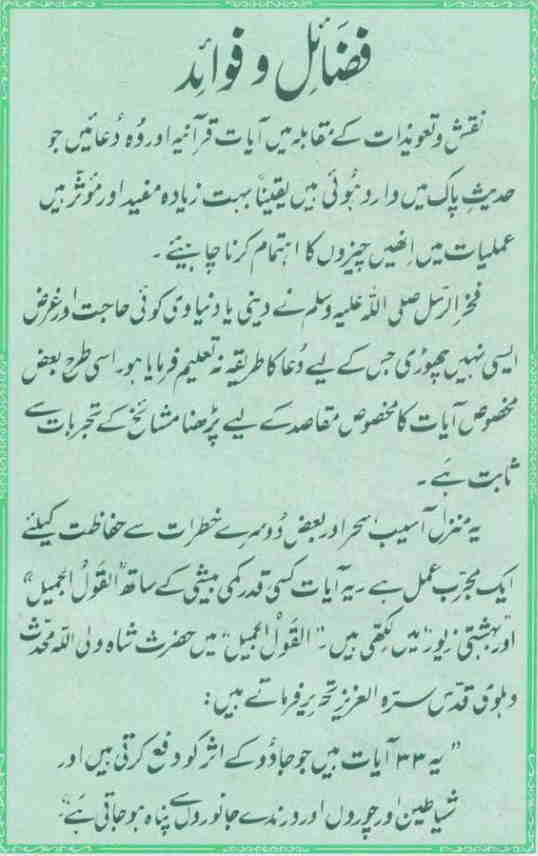 فضَائل و فوائد
نقش و تعویذات کے مقابلہ میں آیات قرآنیہ اور وُہ دُعائیں جو
حدیثِ پاک میں وارد ہُوئی ہیں یقیناً بہت زیادہ مفید اور مؤثر ہیں
عملیات میں اِنھیں چیزوں کا اہتمام کرنا چاہیئے۔
فخر الرسل صلی اللہ علیہ وسلم نے دینی یا دنیاوی کوئی حاجت اور غرض
ایسی نہیں چھوڑی جس کے لیے دُعا کا طریقہ نہ تعلیم فرمایا ہو۔ اسی طرح بعض
مخصوص آیات کا مخصوص مقاصد کے لیے پڑھنا مشائخ کے تجربات سے
ثابت ہَے۔
یہ منزل آسیب سحر اور بعض دُوسرے خطرات سے حفاظت کیلئے
ایک مجرّب عمل ہے۔ یہ آیات کسی قدر کمی بیشی کے ساتھ "القَولُ الجمیل"
اور بہشتی زیور میں لکھی ہیں۔ "القَولُ الجمیل" میں حضرت شاہ ولی اللہ محدّث
دہلوی قدّس سرّہ العزیز تحریر فرماتے ہیں:
"یہ ۳۳ آیات ہیں جو جادُو کے اثر کو دفع کرتی ہیں اور
شیاطین اور چوروں اور درندے جانوروں سے پناہ ہو جاتی ہَے"۔